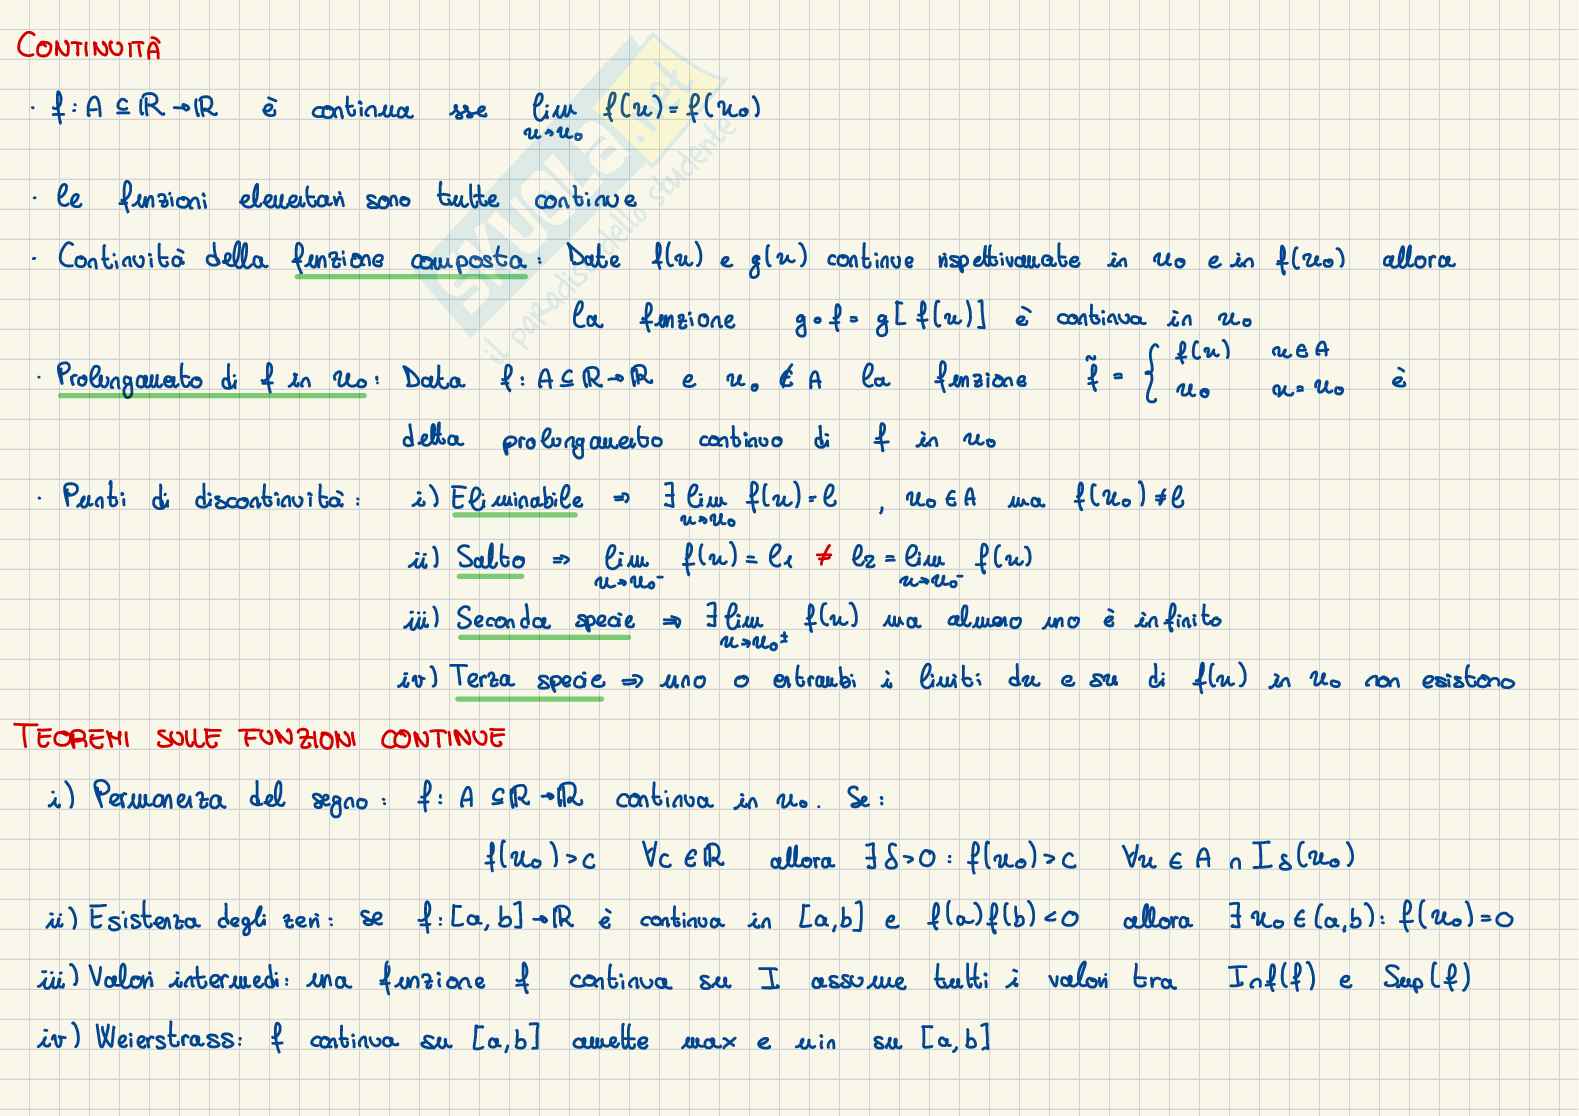 CONTINUITÀ
· f: A ⊆ ℝ → ℝ è continua sse lim x→x₀ f(x) = f(x₀)
· le funzioni elementari sono tutte continue
· Continuità della funzione composta: Date f(x) e g(x) continue rispettivamente in x₀ e in f(x₀) allora
la funzione g∘f = g[f(x)] è continua in x₀
· Prolungamento di f in x₀: Data f: A ⊆ ℝ → ℝ e x₀ ∉ A la funzione f̃ = { f(x) x ∈ A
x₀ x = x₀ è
detta prolungamento continuo di f in x₀
· Punti di discontinuità: i) Eliminabile ⇒ ∃ lim x→x₀ f(x) = l , x₀ ∈ A ma f(x₀) ≠ l
ii) Salto ⇒ lim x→x₀⁻ f(x) = l₁ ≠ l₂ = lim x→x₀⁻ f(x)
iii) Seconda specie ⇒ ∃ lim x→x₀± f(x) ma almeno uno è infinito
iv) Terza specie ⇒ uno o entrambi i limiti dx e sx di f(x) in x₀ non esistono
TEOREMI SULLE FUNZIONI CONTINUE
i) Permanenza del segno: f: A ⊆ ℝ → ℝ continua in x₀. Se:
f(x₀) > c ∀c ∈ ℝ allora ∃ δ > 0 : f(x₀) > c ∀x ∈ A ∩ Iδ(x₀)
ii) Esistenza degli zeri: se f: [a,b] → ℝ è continua in [a,b] e f(a)f(b) < 0 allora ∃ x₀ ∈ (a,b): f(x₀) = 0
iii) Valori intermedi: una funzione f continua su I assume tutti i valori tra Inf(f) e Sup(f)
iv) Weierstrass: f continua su [a,b] amette max e min su [a,b]
SKUOLA.net
il paradiso dello studente